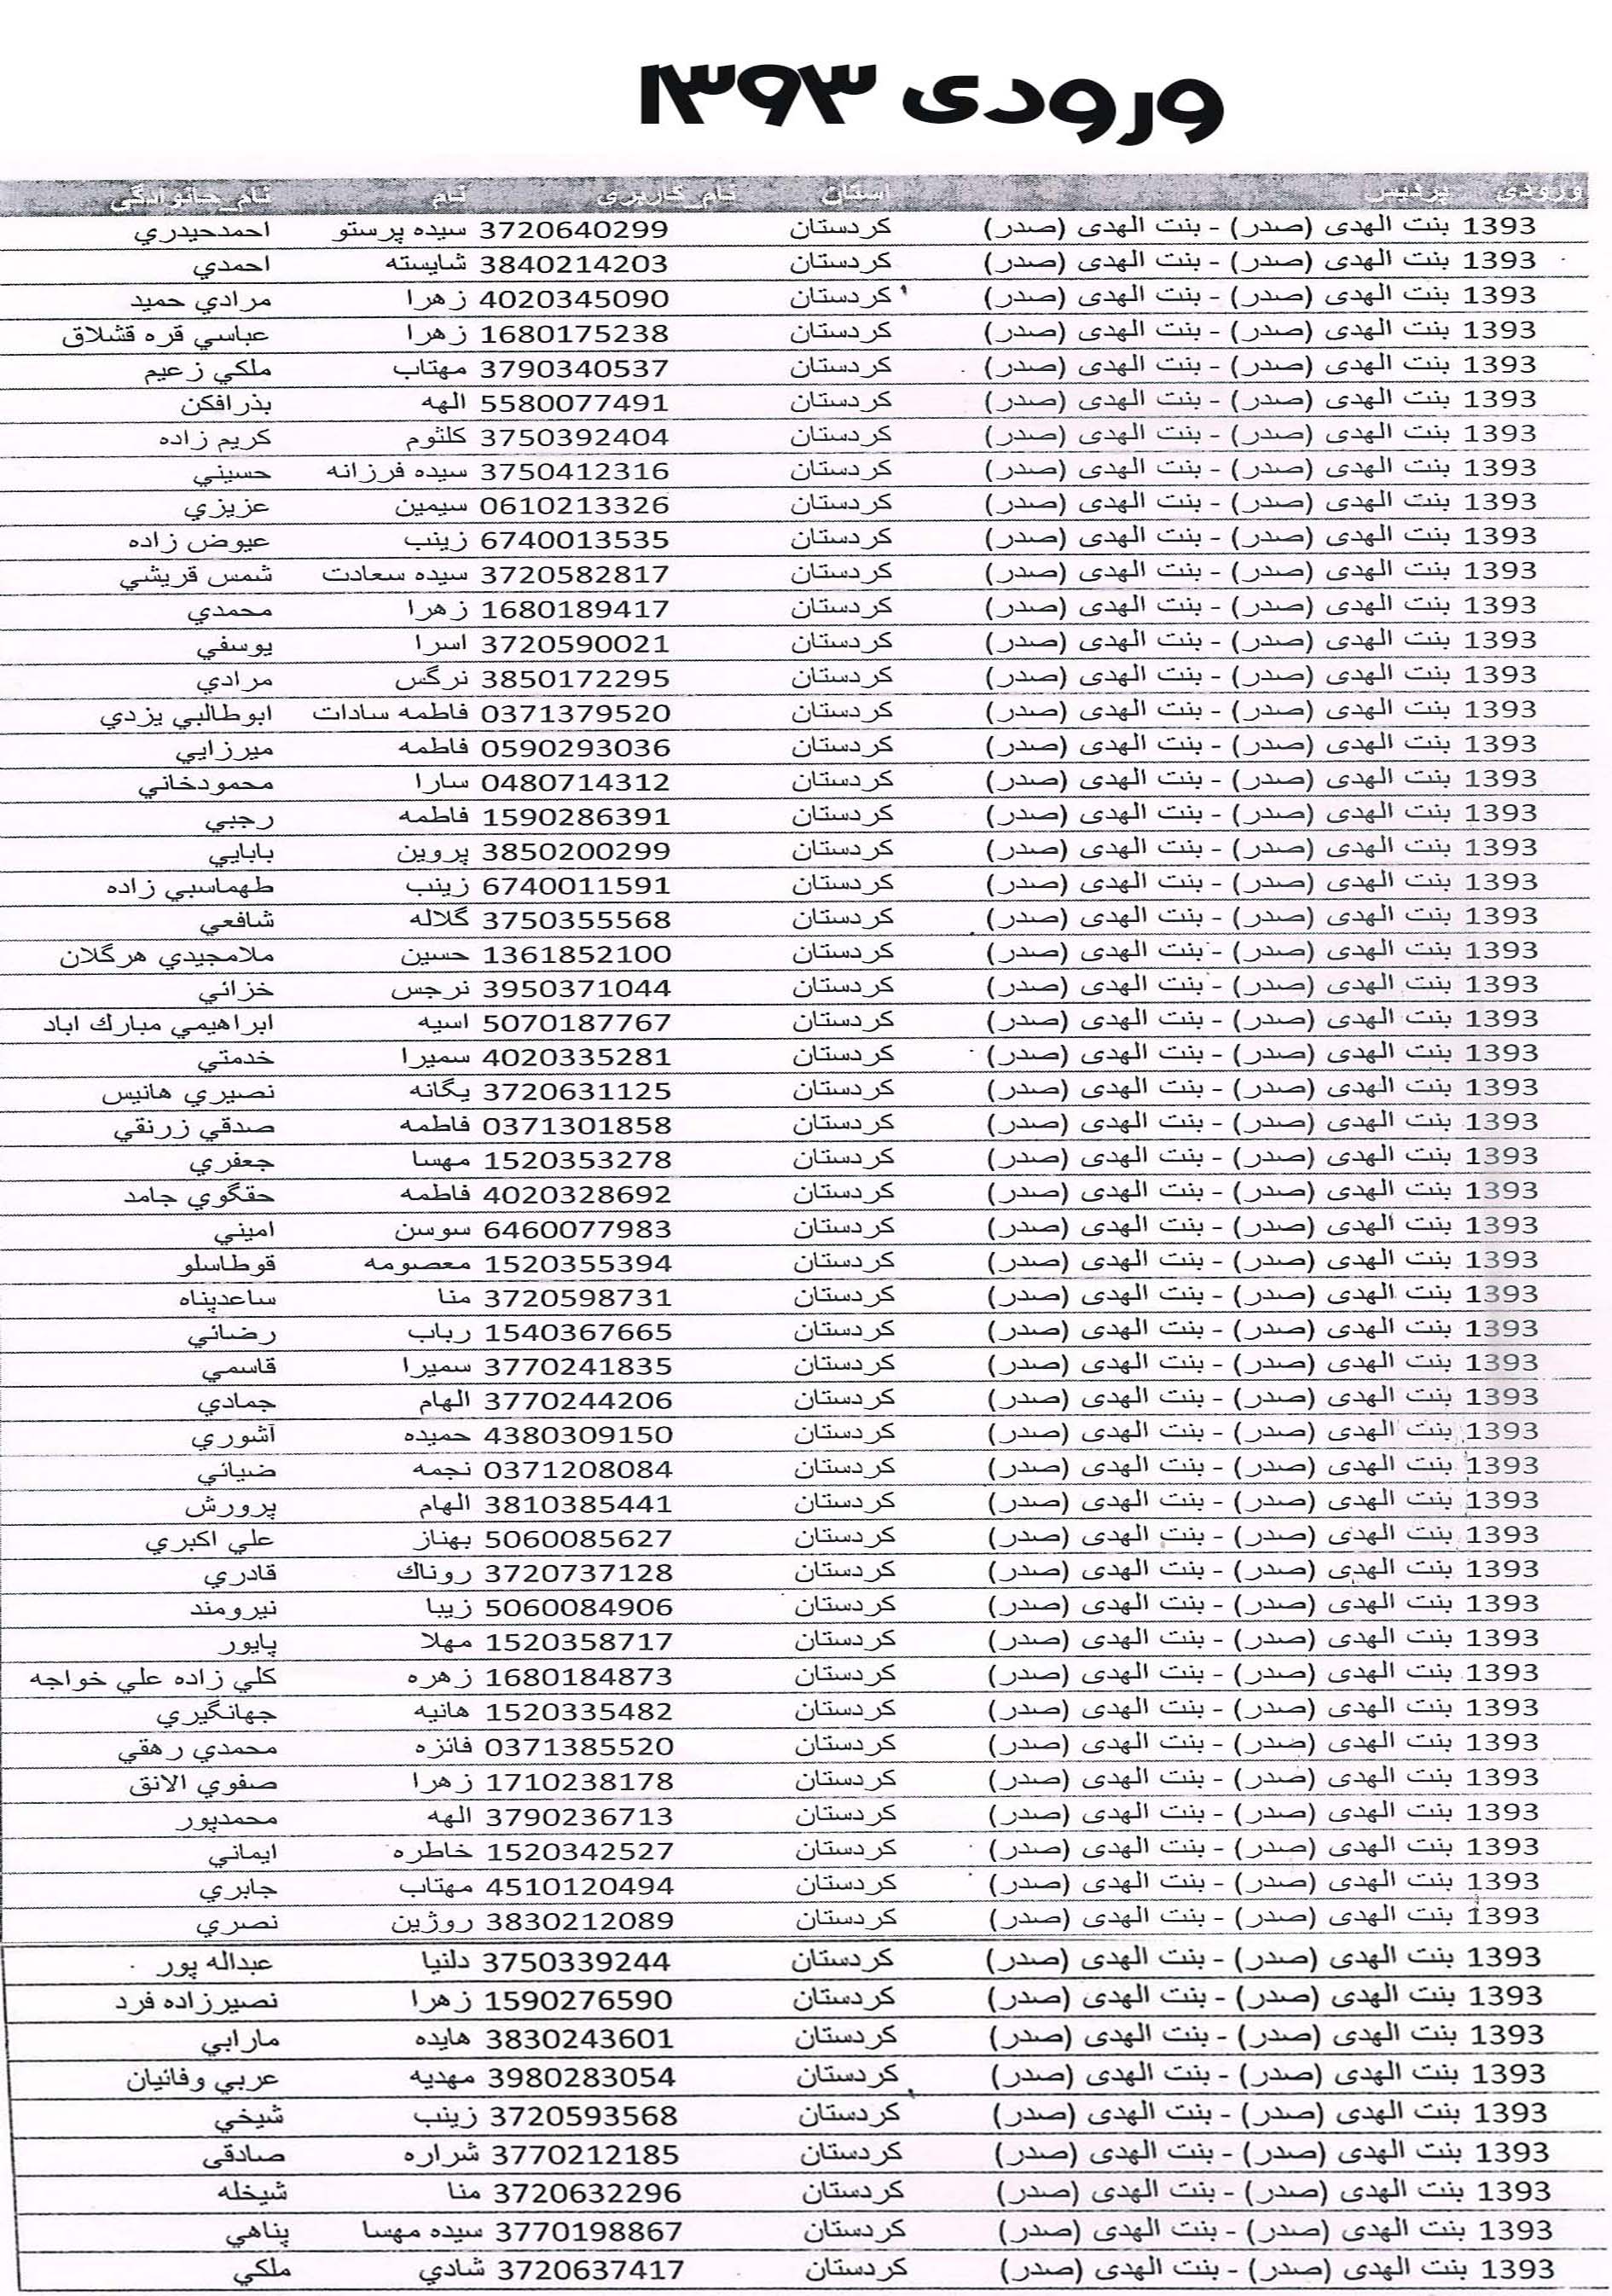 ورودی ۱۳۹۳
ورودی پردیس استان نام_کاربری نام نام_خانوادگی
1393 بنت الهدی (صدر) - بنت الهدی (صدر) کردستان 3720640299 سیده پرستو احمدحیدري
1393 بنت الهدی (صدر) - بنت الهدی (صدر) کردستان 3840214203 شایسته احمدي
1393 بنت الهدی (صدر) - بنت الهدی (صدر) کردستان 4020345090 زهرا مرادي حمید
1393 بنت الهدی (صدر) - بنت الهدی (صدر) کردستان 1680175238 زهرا عباسي قره قشلاق
1393 بنت الهدی (صدر) - بنت الهدی (صدر) کردستان 3790340537 مهتاب ملکي زعیم
1393 بنت الهدی (صدر) - بنت الهدی (صدر) کردستان 5580077491 الهه بذرافکن
1393 بنت الهدی (صدر) - بنت الهدی (صدر) کردستان 3750392404 کلثوم کریم زاده
1393 بنت الهدی (صدر) - بنت الهدی (صدر) کردستان 3750412316 سیده فرزانه حسیني
1393 بنت الهدی (صدر) - بنت الهدی (صدر) کردستان 0610213326 سیمین عزیزي
1393 بنت الهدی (صدر) - بنت الهدی (صدر) کردستان 6740013535 زینب عیوض زاده
1393 بنت الهدی (صدر) - بنت الهدی (صدر) کردستان 3720582817 سیده سعادت شمس قریشي
1393 بنت الهدی (صدر) - بنت الهدی (صدر) کردستان 1680189417 زهرا محمدي
1393 بنت الهدی (صدر) - بنت الهدی (صدر) کردستان 3720590021 اسرا یوسفي
1393 بنت الهدی (صدر) - بنت الهدی (صدر) کردستان 3850172295 نرگس مرادي
1393 بنت الهدی (صدر) - بنت الهدی (صدر) کردستان 0371379520 فاطمه سادات ابوطالبي یزدي
1393 بنت الهدی (صدر) - بنت الهدی (صدر) کردستان 0590293036 فاطمه میرزایي
1393 بنت الهدی (صدر) - بنت الهدی (صدر) کردستان 0480714312 سارا محمودخاني
1393 بنت الهدی (صدر) - بنت الهدی (صدر) کردستان 1590286391 فاطمه رجبي
1393 بنت الهدی (صدر) - بنت الهدی (صدر) کردستان 3850200299 پروین بابایي
1393 بنت الهدی (صدر) - بنت الهدی (صدر) کردستان 6740011591 زینب طهماسبي زاده
1393 بنت الهدی (صدر) - بنت الهدی (صدر) کردستان 3750355568 گلاله شافعي
1393 بنت الهدی (صدر) - بنت الهدی (صدر) کردستان 1361852100 حسین ملامجیدي هرگلان
1393 بنت الهدی (صدر) - بنت الهدی (صدر) کردستان 3950371044 نرجس خزائي
1393 بنت الهدی (صدر) - بنت الهدی (صدر) کردستان 5070187767 اسیه ابراهیمي مبارك اباد
1393 بنت الهدی (صدر) - بنت الهدی (صدر) کردستان 4020335281 سمیرا خدمتي
1393 بنت الهدی (صدر) - بنت الهدی (صدر) کردستان 3720631125 یگانه نصیري هانیس
1393 بنت الهدی (صدر) - بنت الهدی (صدر) کردستان 0371301858 فاطمه صدقي زرنقي
1393 بنت الهدی (صدر) - بنت الهدی (صدر) کردستان 1520353278 مهسا جعفري
1393 بنت الهدی (صدر) - بنت الهدی (صدر) کردستان 4020328692 فاطمه حقگوي جامد
1393 بنت الهدی (صدر) - بنت الهدی (صدر) کردستان 6460077983 سوسن امیني
1393 بنت الهدی (صدر) - بنت الهدی (صدر) کردستان 1520355394 معصومه قوطاسلو
1393 بنت الهدی (صدر) - بنت الهدی (صدر) کردستان 3720598731 منا ساعدپناه
1393 بنت الهدی (صدر) - بنت الهدی (صدر) کردستان 1540367665 رباب رضائي
1393 بنت الهدی (صدر) - بنت الهدی (صدر) کردستان 3770241835 سمیرا قاسمي
1393 بنت الهدی (صدر) - بنت الهدی (صدر) کردستان 3770244206 الهام جمادي
1393 بنت الهدی (صدر) - بنت الهدی (صدر) کردستان 4380309150 حمیده آشوري
1393 بنت الهدی (صدر) - بنت الهدی (صدر) کردستان 0371208084 نجمه ضیائي
1393 بنت الهدی (صدر) - بنت الهدی (صدر) کردستان 3810385441 الهام پرورش
1393 بنت الهدی (صدر) - بنت الهدی (صدر) کردستان 5060085627 بهناز علي اکبري
1393 بنت الهدی (صدر) - بنت الهدی (صدر) کردستان 3720737128 روناك قادري
1393 بنت الهدی (صدر) - بنت الهدی (صدر) کردستان 5060084906 زیبا نیرومند
1393 بنت الهدی (صدر) - بنت الهدی (صدر) کردستان 1520358717 مهلا پایور
1393 بنت الهدی (صدر) - بنت الهدی (صدر) کردستان 1680184873 زهره کلي زاده علي خواجه
1393 بنت الهدی (صدر) - بنت الهدی (صدر) کردستان 1520335482 هانیه جهانگیري
1393 بنت الهدی (صدر) - بنت الهدی (صدر) کردستان 0371385520 فائزه محمدي رهقي
1393 بنت الهدی (صدر) - بنت الهدی (صدر) کردستان 1710238178 زهرا صفوي الانق
1393 بنت الهدی (صدر) - بنت الهدی (صدر) کردستان 3790236713 الهه محمدپور
1393 بنت الهدی (صدر) - بنت الهدی (صدر) کردستان 1520342527 خاطره ایماني
1393 بنت الهدی (صدر) - بنت الهدی (صدر) کردستان 4510120494 مهتاب جابري
1393 بنت الهدی (صدر) - بنت الهدی (صدر) کردستان 3830212089 روژین نصري
1393 بنت الهدی (صدر) - بنت الهدی (صدر) کردستان 3750339244 دلنیا عبداله پور
1393 بنت الهدی (صدر) - بنت الهدی (صدر) کردستان 1590276590 زهرا نصیرزاده فرد
1393 بنت الهدی (صدر) - بنت الهدی (صدر) کردستان 3830243601 هایده مارابي
1393 بنت الهدی (صدر) - بنت الهدی (صدر) کردستان 3980283054 مهدیه عربي وفائیان
1393 بنت الهدی (صدر) - بنت الهدی (صدر) کردستان 3720593568 زینب شیخي
1393 بنت الهدی (صدر) - بنت الهدی (صدر) کردستان 3770212185 شراره صادقی
1393 بنت الهدی (صدر) - بنت الهدی (صدر) کردستان 3720632296 منا شیخله
1393 بنت الهدی (صدر) - بنت الهدی (صدر) کردستان 3770198867 سیده مهسا پناهي
1393 بنت الهدی (صدر) - بنت الهدی (صدر) کردستان 3720637417 شادي ملکي